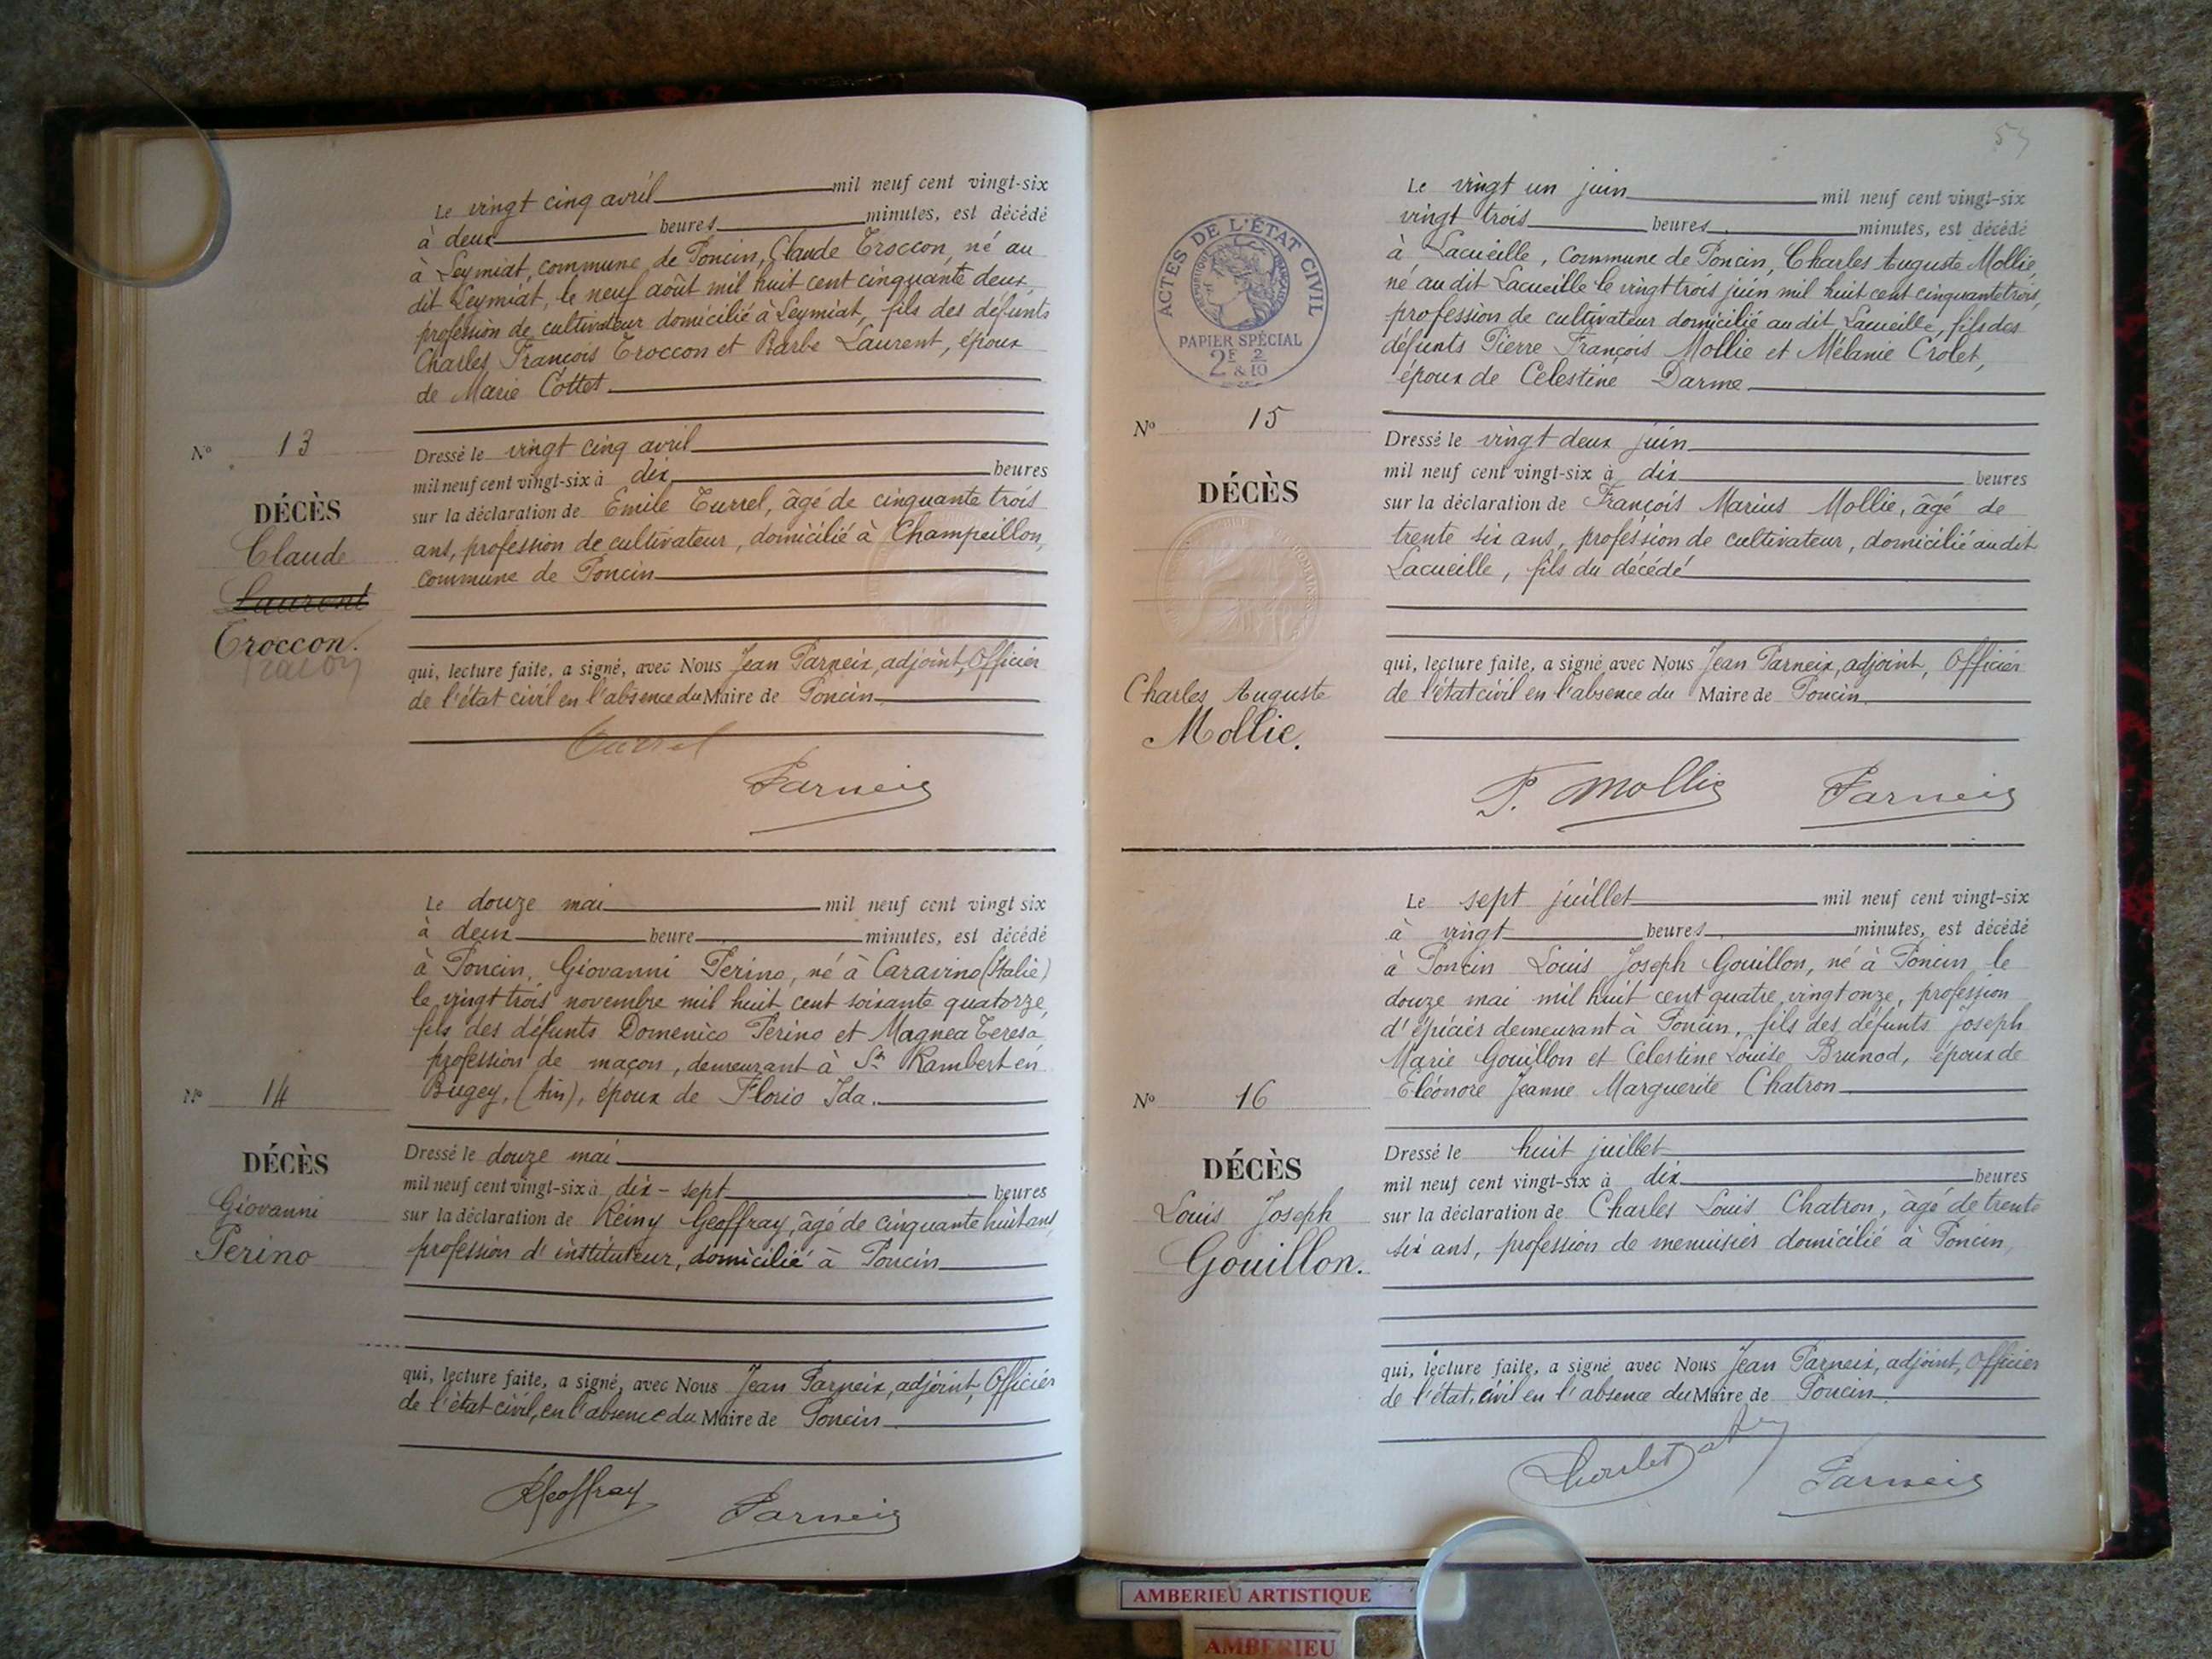 Le vingt cinq avril mil neuf cent vingt-six
à deux heures minutes, est décédé
à Leymiat, commune de Poncin, Claude Troccon, né au
dit Leymiat, le neuf août mil huit cent cinquante deux,
profession de cultivateur domicilié à Leymiat, fils des défunts
Charles François Troccon et Barbe Laurent, époux
de Marie Cottet
Nº 13
DÉCÈS
Claude
Laurent
Troccon.
Dressé le vingt cinq avril
mil neuf cent vingt-six à dix heures
sur la déclaration de Emile Turrel, âgé de cinquante trois
ans, profession de cultivateur, domicilié à Champeillon,
commune de Poncin
qui, lecture faite, a signé, avec Nous Jean Parneix, adjoint, Officier
de l'état civil en l'absence du Maire de Poncin
Turrel
Parneix
Le douze mai mil neuf cent vingt six
à deux heure minutes, est décédé
à Poncin, Giovanni Perino, né à Caravino (Italie)
le vingt trois novembre mil huit cent soixante quatorze,
fils des défunts Domenico Perino et Magnea Teresa
profession de maçon, demeurant à St Rambert en
Bugey, (Ain), époux de Florio Ida.
Nº 14
DÉCÈS
Giovanni
Perino
Dressé le douze mai
mil neuf cent vingt-six à dix-sept heures
sur la déclaration de Rémy Geoffray, âgé de cinquante huit ans,
profession d'instituteur, domicilié à Poncin
qui, lecture faite, a signé, avec Nous Jean Parneix, adjoint, Officier
de l'état civil, en l'absence du Maire de Poncin
RGeoffray
Parneix
ACTES DE L'ÉTAT CIVIL
PAPIER SPÉCIAL
2F 2
& 10
Le vingt un juin mil neuf cent vingt-six
vingt trois heures minutes, est décédé
à Lacueille, commune de Poncin, Charles Auguste Mollie,
né au dit Lacueille le vingt trois juin mil huit cent cinquante trois,
profession de cultivateur domicilié au dit Lacueille, fils des
défunts Pierre François Mollie et Mélanie Crolet,
époux de Celestine Darme
Nº 15
DÉCÈS
Charles Auguste
Mollie.
Dressé le vingt deux juin
mil neuf cent vingt-six à dix heures
sur la déclaration de François Marius Mollie, âgé de
trente six ans, profession de cultivateur, domicilié au dit
Lacueille, fils du décédé
qui, lecture faite, a signé avec Nous Jean Parneix, adjoint, Officier
de l'état civil en l'absence du Maire de Poncin
F. Mollie
Parneix
Le sept juillet mil neuf cent vingt-six
à vingt heures minutes, est décédé
à Poncin Louis Joseph Gouillon, né à Poncin le
douze mai mil huit cent quatre vingt onze, profession
d'épicier demeurant à Poncin, fils des défunts Joseph
Marie Gouillon et Celestine Louise Brunod, époux de
Eléonore Jeanne Marguerite Chatron
Nº 16
DÉCÈS
Louis Joseph
Gouillon.
Dressé le huit juillet
mil neuf cent vingt-six à dix heures
sur la déclaration de Charles Louis Chatron, âgé de trente
six ans, profession de menuisier domicilié à Poncin,
qui, lecture faite, a signé avec Nous Jean Parneix, adjoint, Officier
de l'état civil en l'absence du Maire de Poncin
Parneix
AMBERIEU ARTISTIQUE
AMBERIEU